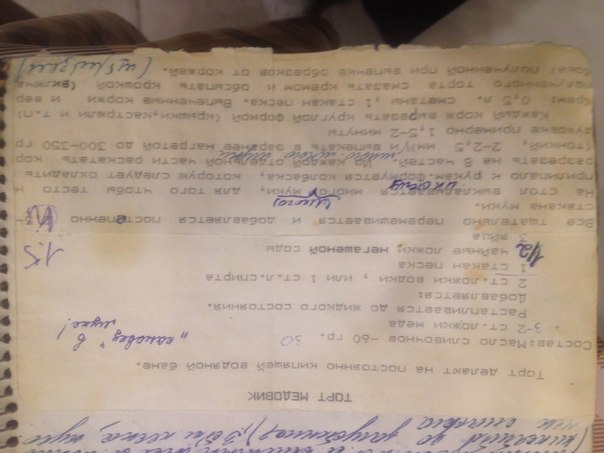 ТОРТ МЕДОВИК
Торт делают на постоянно кипящей водяной бане.
Состав: Масло сливочное -60 гр. 30
3-2 ст. ложки меда
Растапливается до жидкого состояния.
Добавляется:
2 ст. ложки водки , или 1 ст.л.спирта
1 стакан песка
1/2 чайные ложки негашеной соды
3 яйца
1.5
Все тщательно перемешивается и добавляется постепенно
стакана муки.
(много)
На стол выкладывается много муки, для того чтобы тесто н
прилипало к рукам.Формуется колбаска, которую следует охладить
разрезать на 8 частей. Из каждой отдельной части раскатать кор
тонкий, 2-2,5 мм/и выпекать в заранее нагретой до 300-350 гр
духовке примерно 1,5-2 минуты
Каждый корж вырезать круглой формой (крышки,кастрюли и т.п)
крем: 0,5 л. сметаны 1, стакан. песка. Выпеченные коржи и вер
полученного торта смазать кремом и обсыпать крошкой (включа
бока) полученной при выпечке образков от коржей.